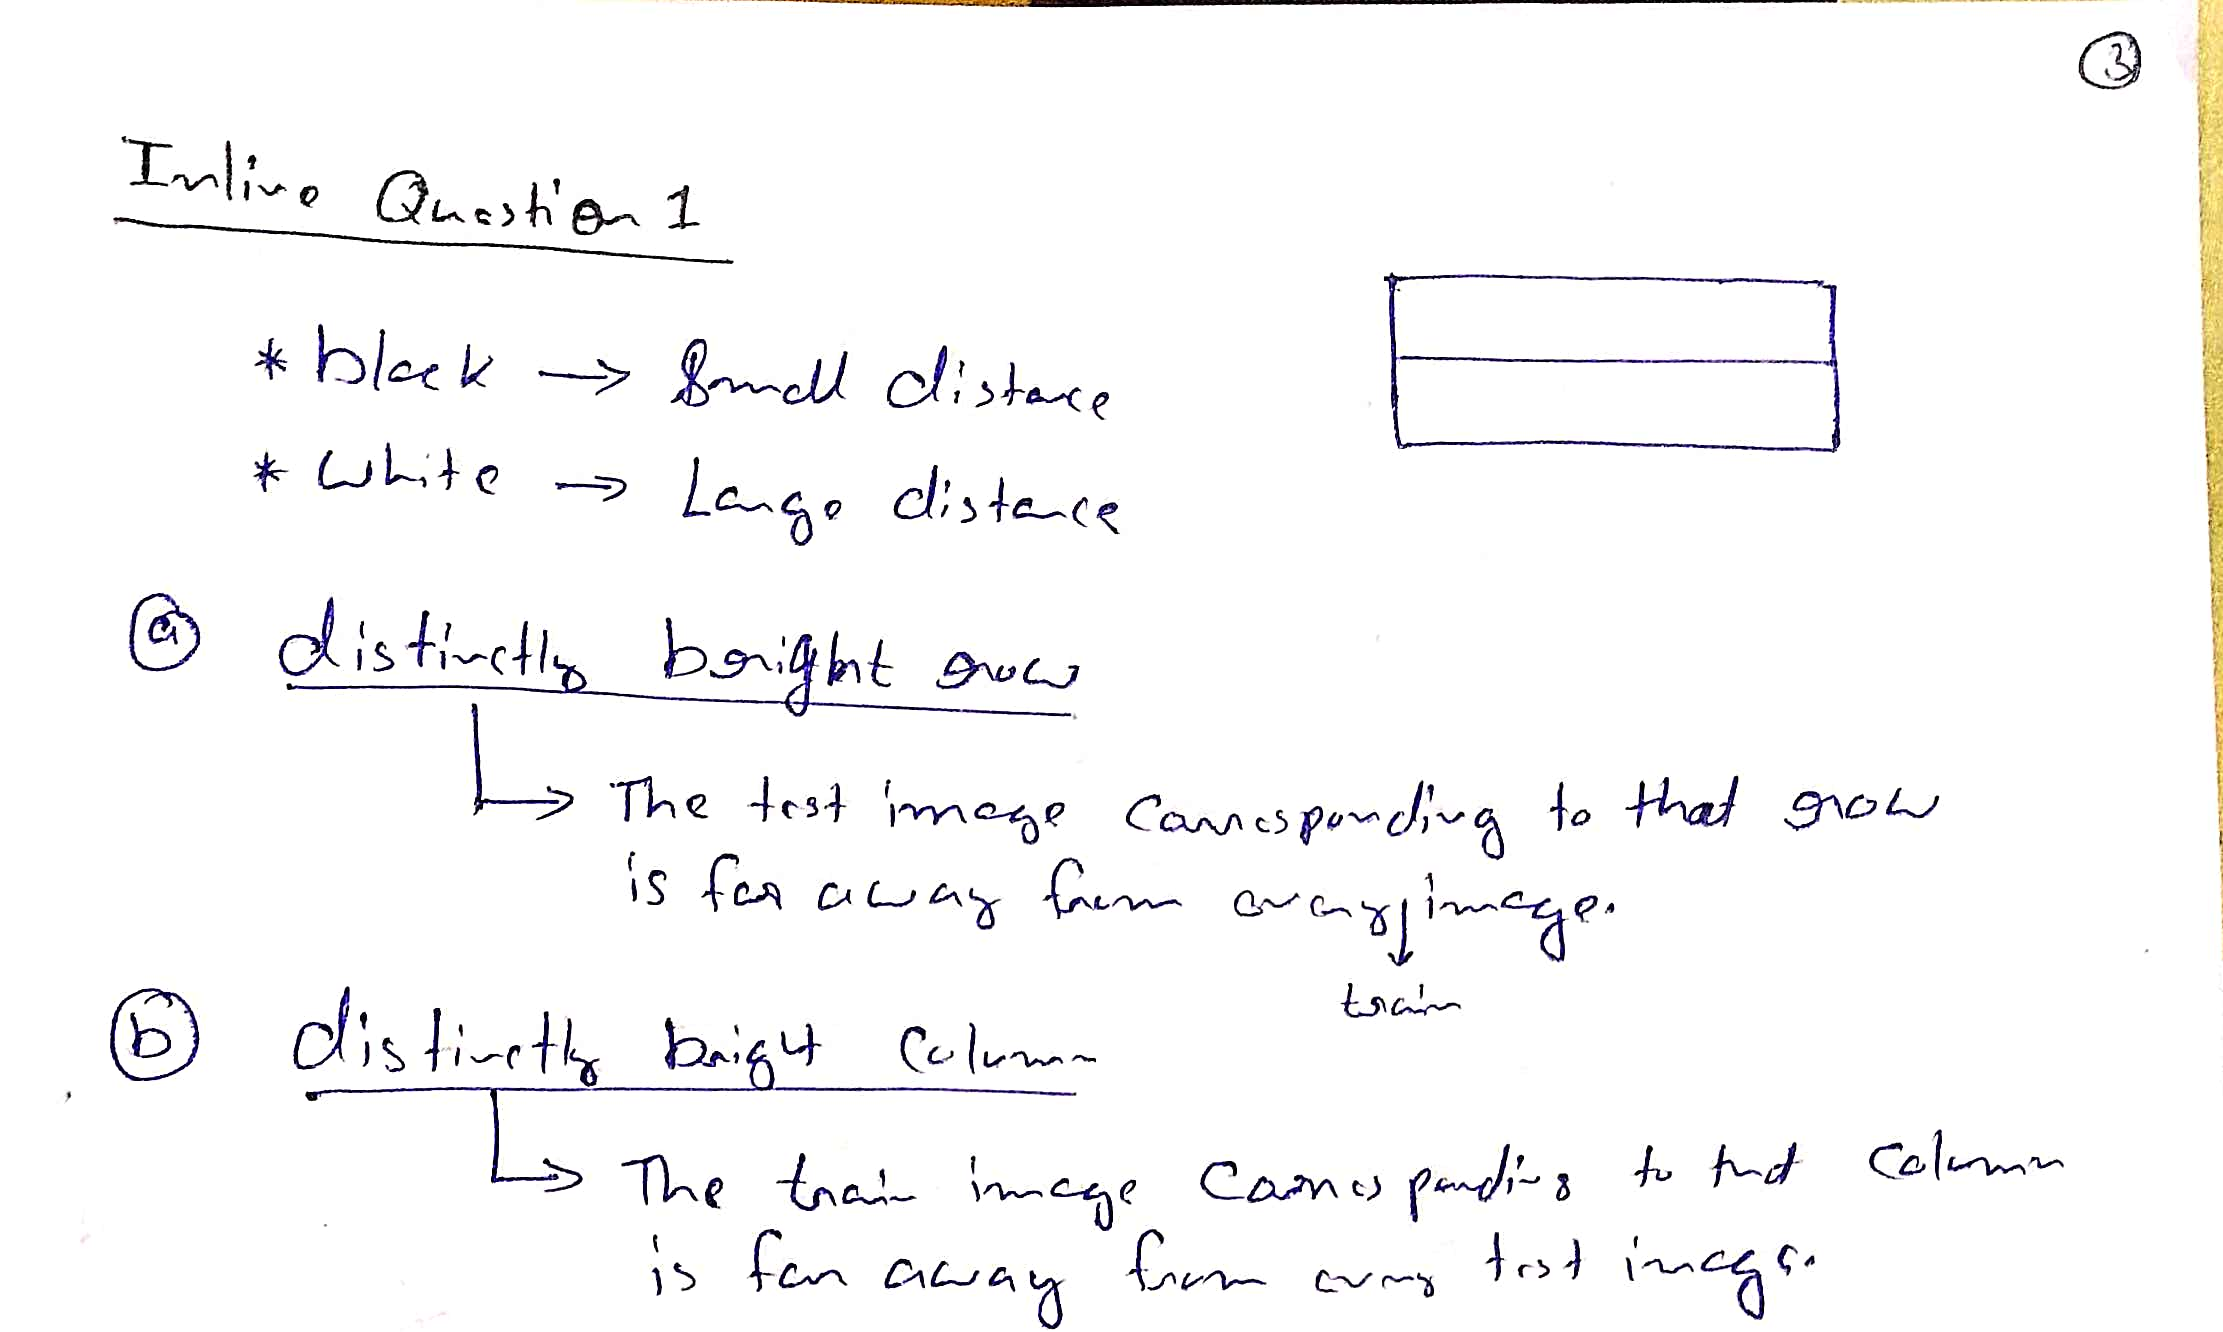 3
Inline Question 1
* black → Small distance
* white → Large distance
a distinctly bright row
↳ The test image corresponding to that row
is far away from every image.
↓
train
b distinctly bright column
↳ The train image corresponding to that column
is far away from every test image.